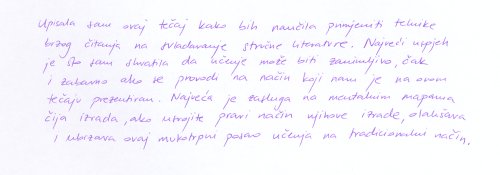 Upisala sam ovaj tečaj kako bih naučila primjeniti tehnike
brzog čitanja na svladavanje stručne literature. Najveći uspjeh
je što sam shvatila da učenje može biti zanimljivo, čak
i zabavno ako se provodi na način koji nam je na ovom
tečaju prezentiran. Najveća je zasluga na mentalnim mapama
čija izrada, ako utrojite pravi način njihove izrade, olakšava
i ubrzava ovaj mukotrpni posao učenja na tradicionalni način.